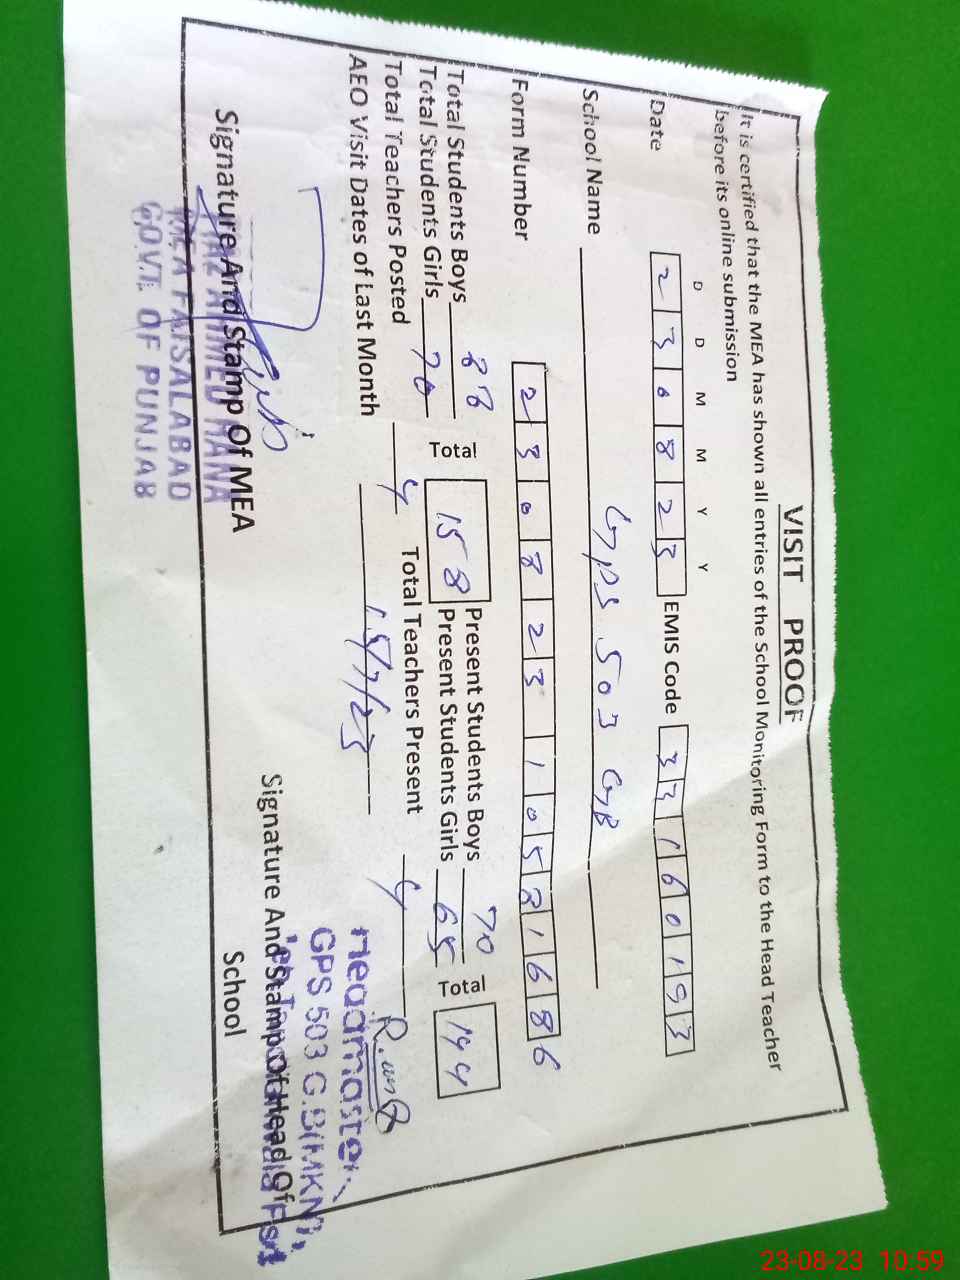 VISIT PROOF
It is certified that the MEA has shown all entries of the School Monitoring Form to the Head Teacher
before its online submission
D D M M Y Y
Date 2 3 0 8 2 3 EMIS Code 3 3 1 6 0 1 9 3
School Name GPS 503 GB
Form Number 2 3 0 8 2 3 1 0 5 8 1 6 8 6
Total Students Boys 88 Present Students Boys 70
Total Students Girls 70 Total 158 Present Students Girls 65 Total 144
Total Teachers Posted 4 Total Teachers Present 4
AEO Visit Dates of Last Month 15/7/23
Headmaster
GPS 503 G.B(MKN),
Signature And Stamp Of MEA Signature And Stamp Of Head Of
School
AHMED RANA
MEA FAISALABAD
GOVT. OF PUNJAB
23-08-23 10:59